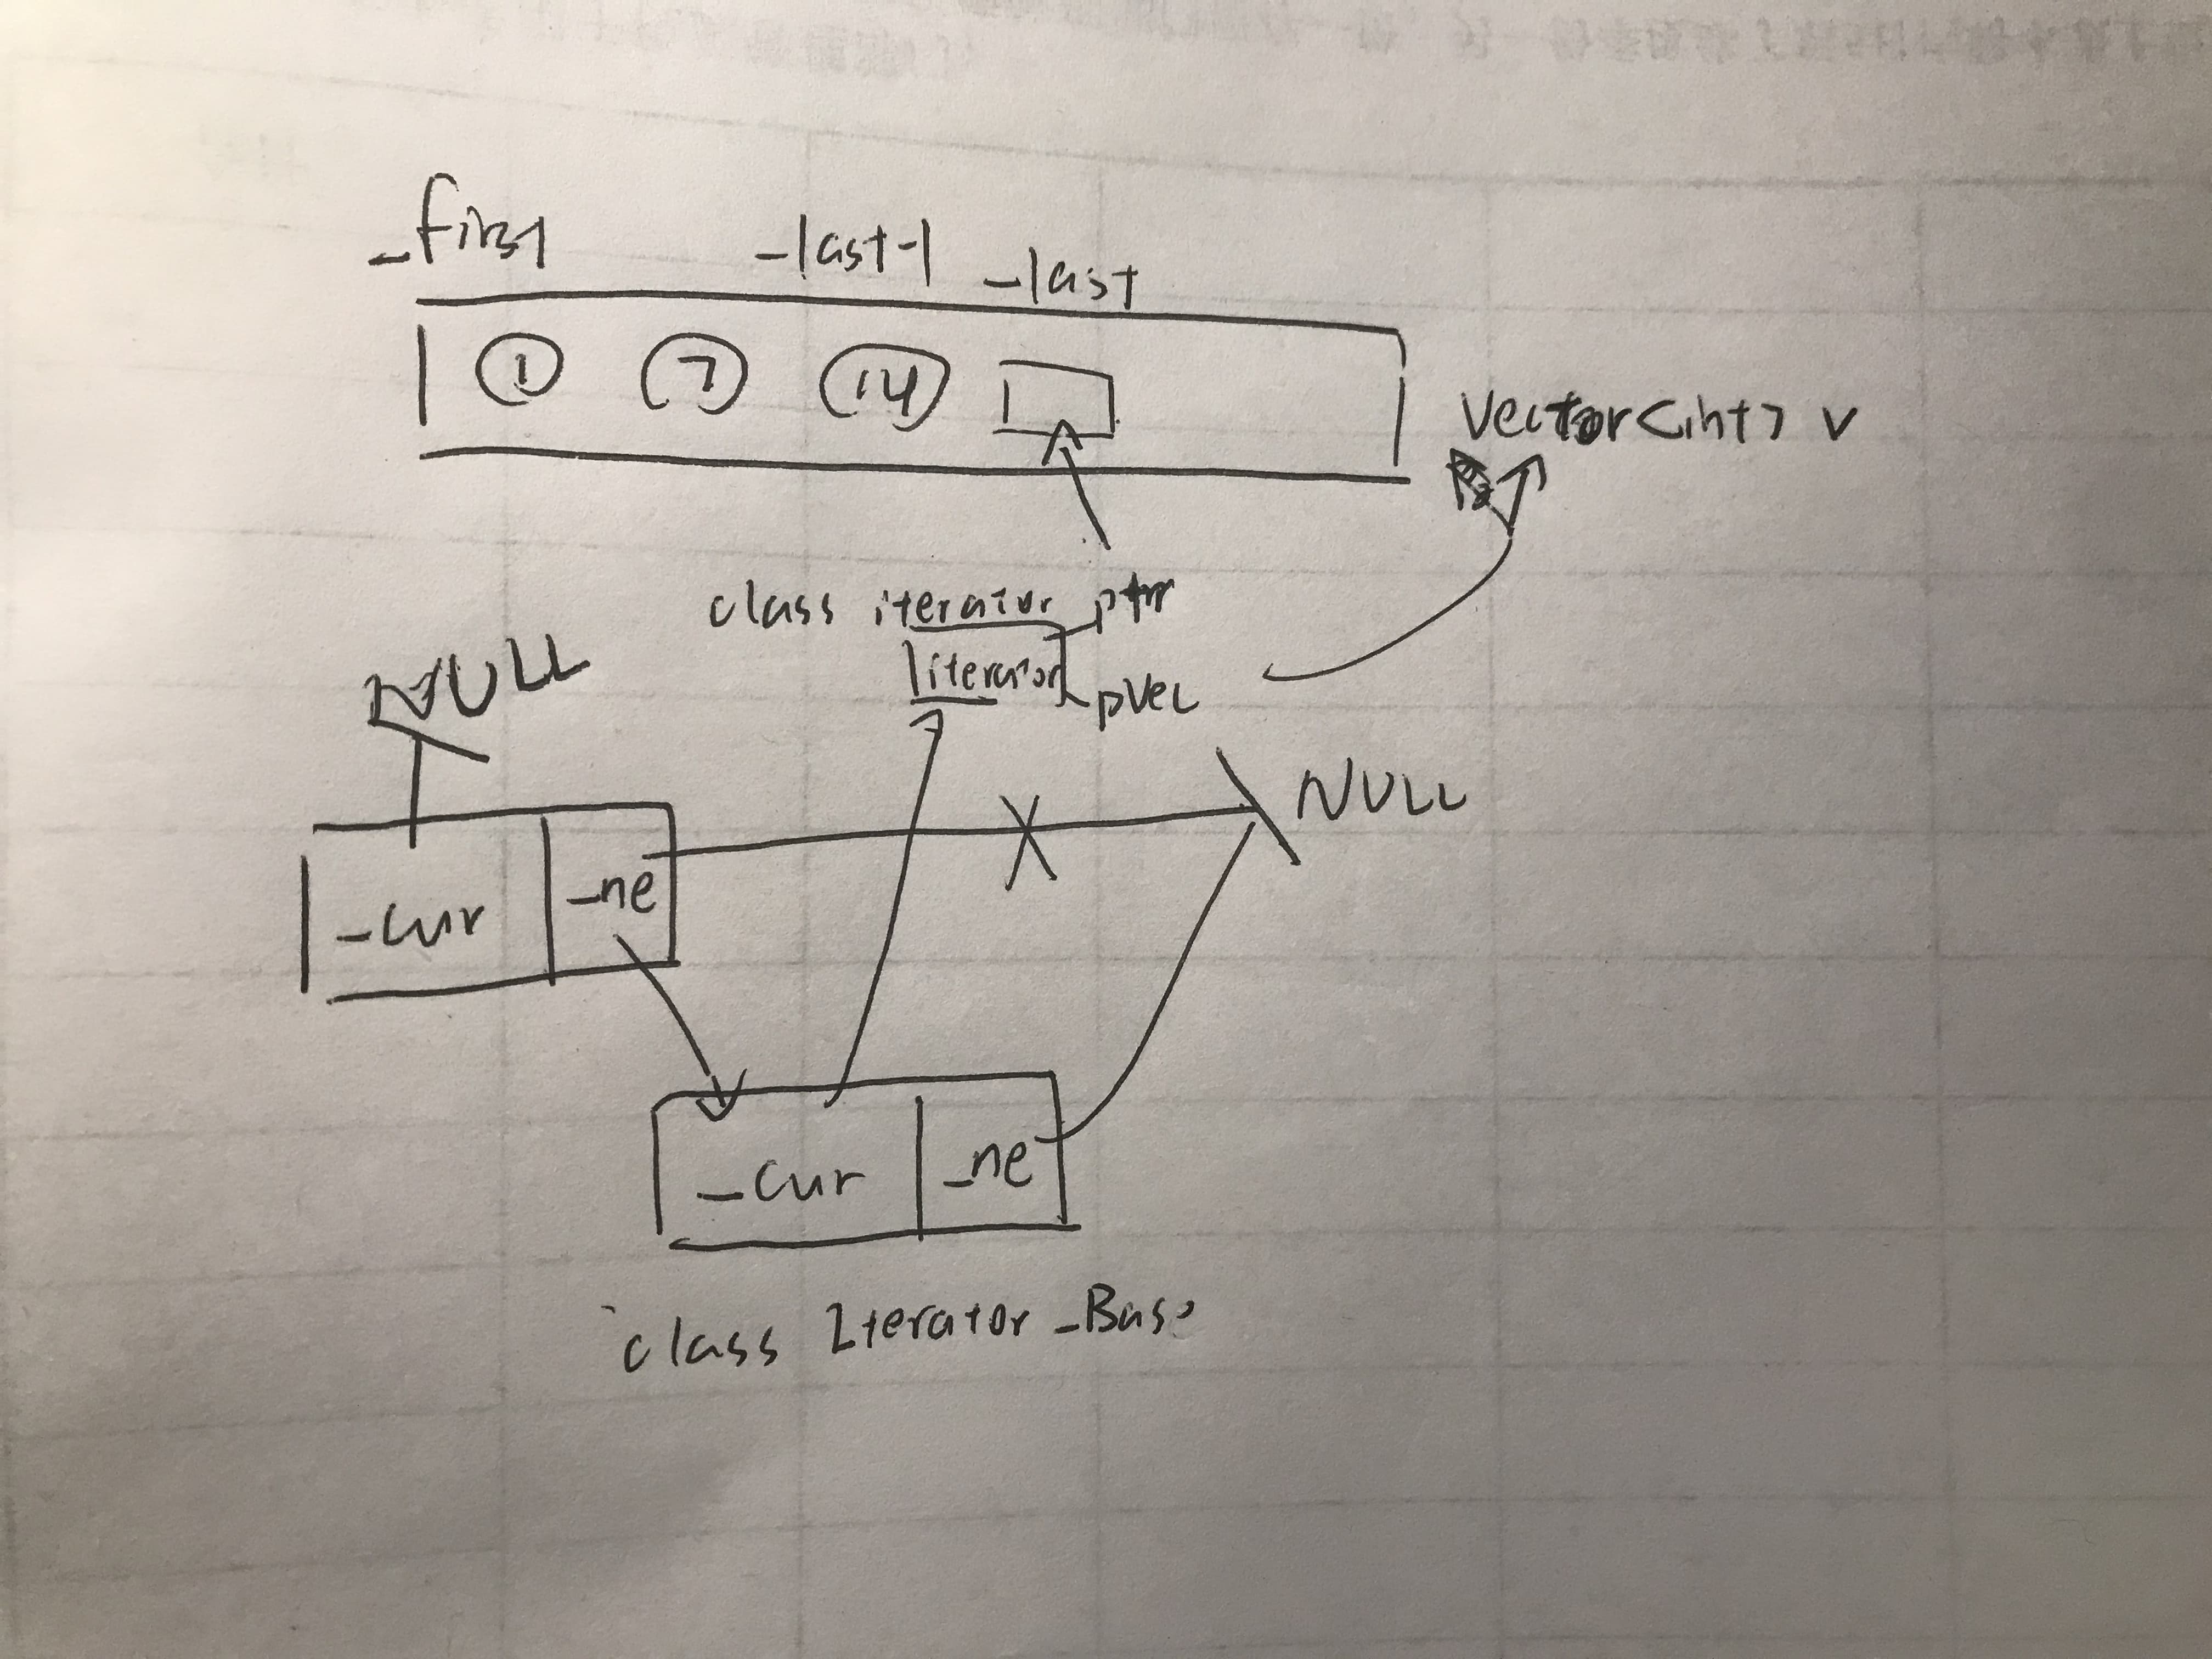 _first
_last-1
_last
1 7 14
vector<int> v
class iterator ptr
iterator pvec
NULL
NULL
_cur _ne
_cur _ne
class Iterator_Base